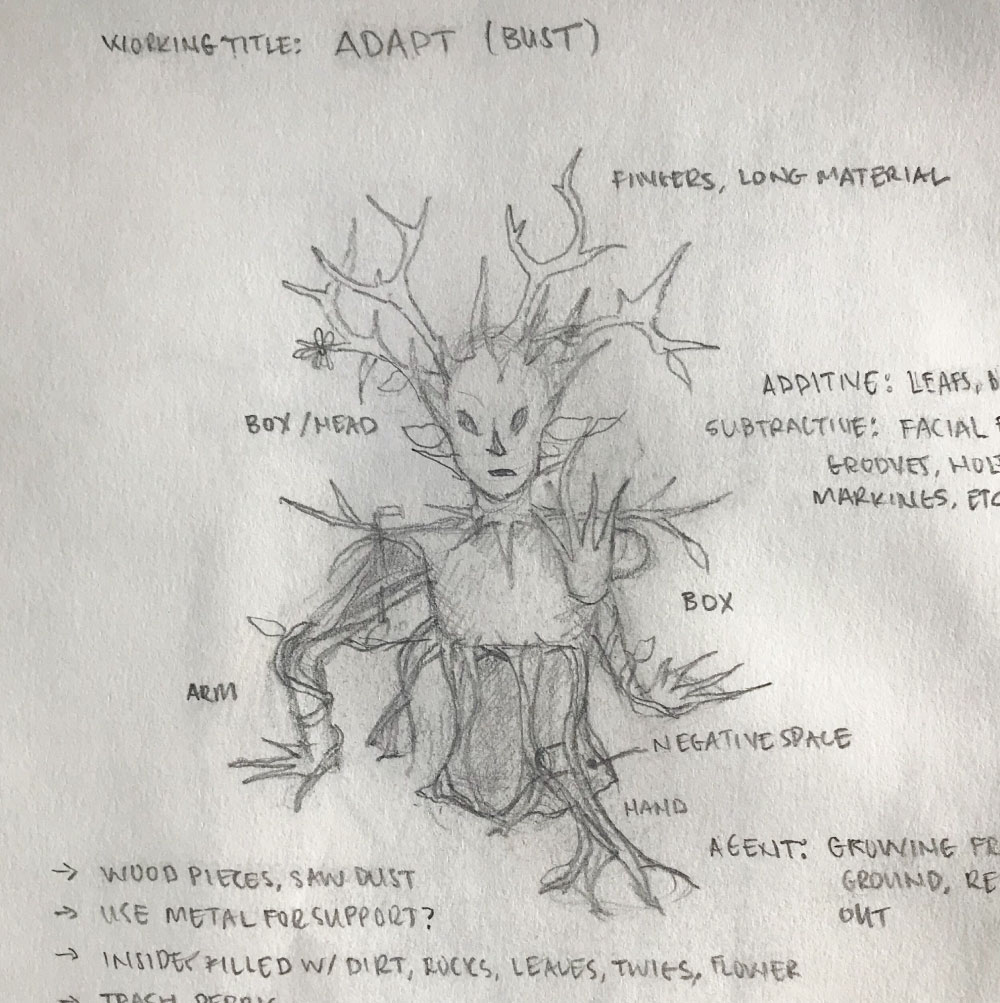 WORKING TITLE: ADAPT (BUST)
FINGERS, LONG MATERIAL
ADDITIVE: LEAFS,
BOX/HEAD
SUBTRACTIVE: FACIAL
GROOVES,
MARKINGS, ETC
BOX
ARM
NEGATIVE SPACE
HAND
AGENT: GROWING
GROUND,
OUT
→ WOOD PIECES, SAW DUST
→ USE METAL FOR SUPPORT?
→ INSIDE FILLED W/ DIRT, ROCKS, LEAVES, TWIGS, FLOWER
→ TRASH